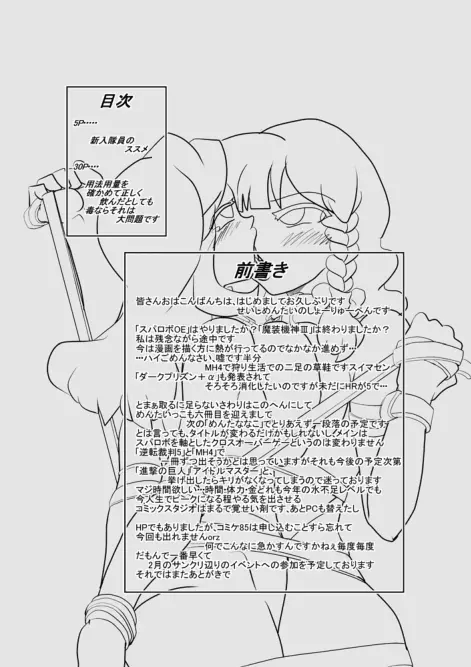 目次
5P‥‥‥
新入隊員の
ススメ
30P‥‥
用法用量を
確かめて正しく
飲んだとしても
毒ならそれは
大問題です
前書き
皆さんおはこんばんちは、はじめましてお久しぶりです
せいしめんたいのしょーりゅーへんです
「スパロボOE」はやりましたか？「魔装機神Ⅲ」は終わりましたか？
私は残念ながら途中です
今は漫画を描く方に熱が行ってるのでなかなか進めず…
……ハイごめんなさい、嘘です半分
MH4で狩り生活での二足の草鞋ですスイマセン
「ダークプリズン＋α」も発表されて
そろそろ消化したいのですが未だにHRが5で…
とまぁ取るに足らないさわりはこのへんにして
めんたいっこも六冊目を迎えまして
次の「めんたななこ」でとりあえず一段落の予定です
とは言っても、タイトルが変わるだけかもしれないし、メインは
スパロボを軸としたクロスオーバーゲーというのは変わりません
「逆転裁判5」と「MH4」で
一冊ずつ出そうかとは思っていますがそれも今後の予定次第
「進撃の巨人」「アイドルマスター」と、
挙げ出したらキリがなくなってしまうので迷っております
マジ時間欲しい…時間・体力・金どれも今年の水不足レベルでも
今人生でピークになる程やる気を出させる
コミックスタジオはまるで覚せい剤です、あとPCも替えたし
HPでもありましたが、コミケ85は申し込むことすら忘れて
今回も出れませんorz
何でこんなに急かすんですかねぇ毎度毎度
だもんで一番早くて
2月のサンクリ辺りのイベントへの参加を予定しております
それではまたあとがきで